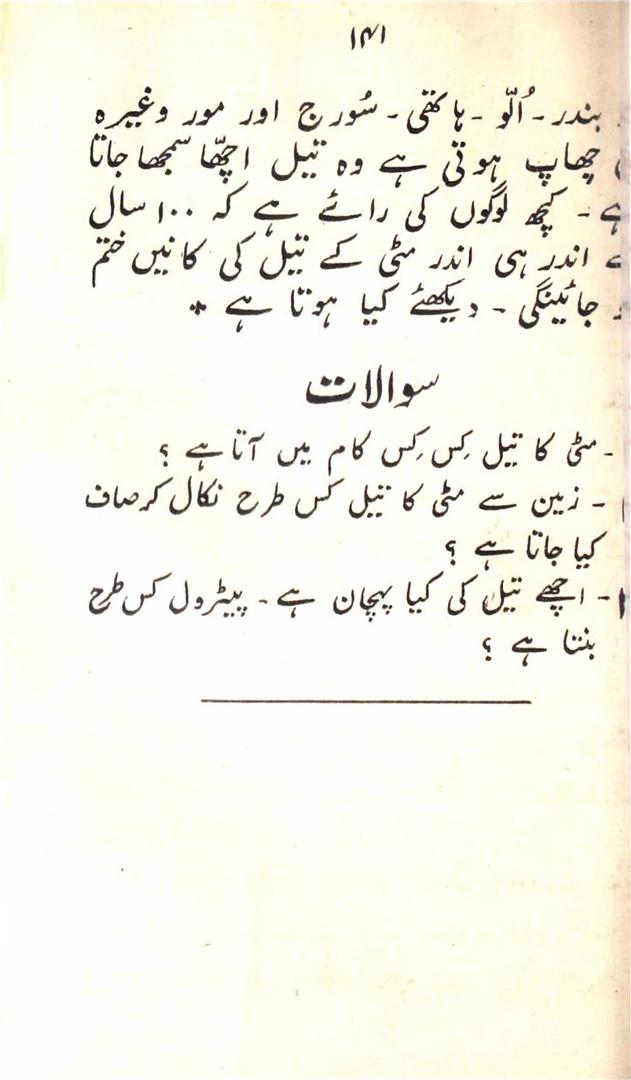 ۱۴۱
بندر - اُلّو - ہاتھی - سُورج اور مور وغیرہ
چھاپ ہوتی ہے وہ تیل اچھّا سمجھا جاتا
ہے - کچھ لوگوں کی رائے ہے کہ ۱۰۰ سال
اندر ہی اندر مٹی کے تیل کی کانیں ختم
جائینگی - دیکھئے کیا ہوتا ہے *
سوالات
- مٹی کا تیل کِس کِس کام میں آتا ہے ؟
- زمین سے مٹی کا تیل کس طرح نکال کر صاف
کیا جاتا ہے ؟
- اچھے تیل کی کیا پہچان ہے - پیٹرول کس طرح
بنتا ہے ؟